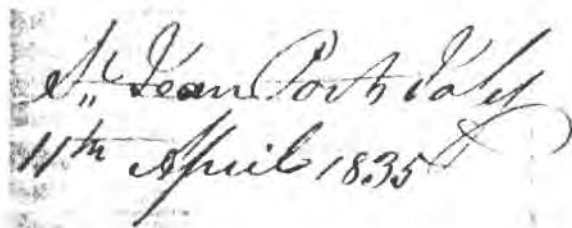 St. Jean Port Joly
11th April 1835